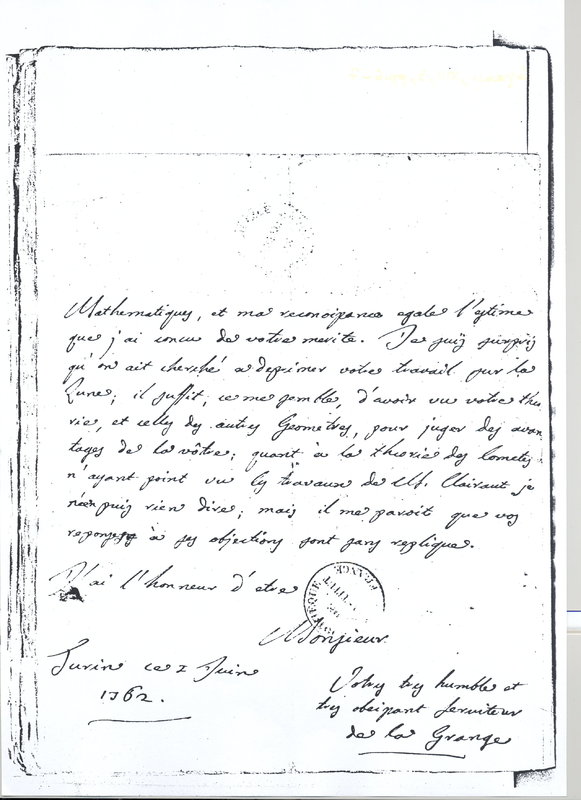 Mathematiques, et ma reconoissance egale l'estime
que j'ai concu de votre merite. Je suis surpris
qu'on ait cherché a deprimer votre travail sur la
Lune; il suffit, ce me semble, d'avoir vu votre théo
rie, et celles des autres Geometres, pour juger des avan
tages de la vôtre; quant à la theorie des Cometes
n'ayant point vu les travaux de M. Clairaut je
n'en puis rien dire; mais il me paroit que vos
reponses à ses objections sont sans replique.
J'ai l'honneur d'etre
FRANCE
Monsieur
Turin ce 2 Juin
1762.
Votre tres humble et
tres obeissant serviteur
de la Grange